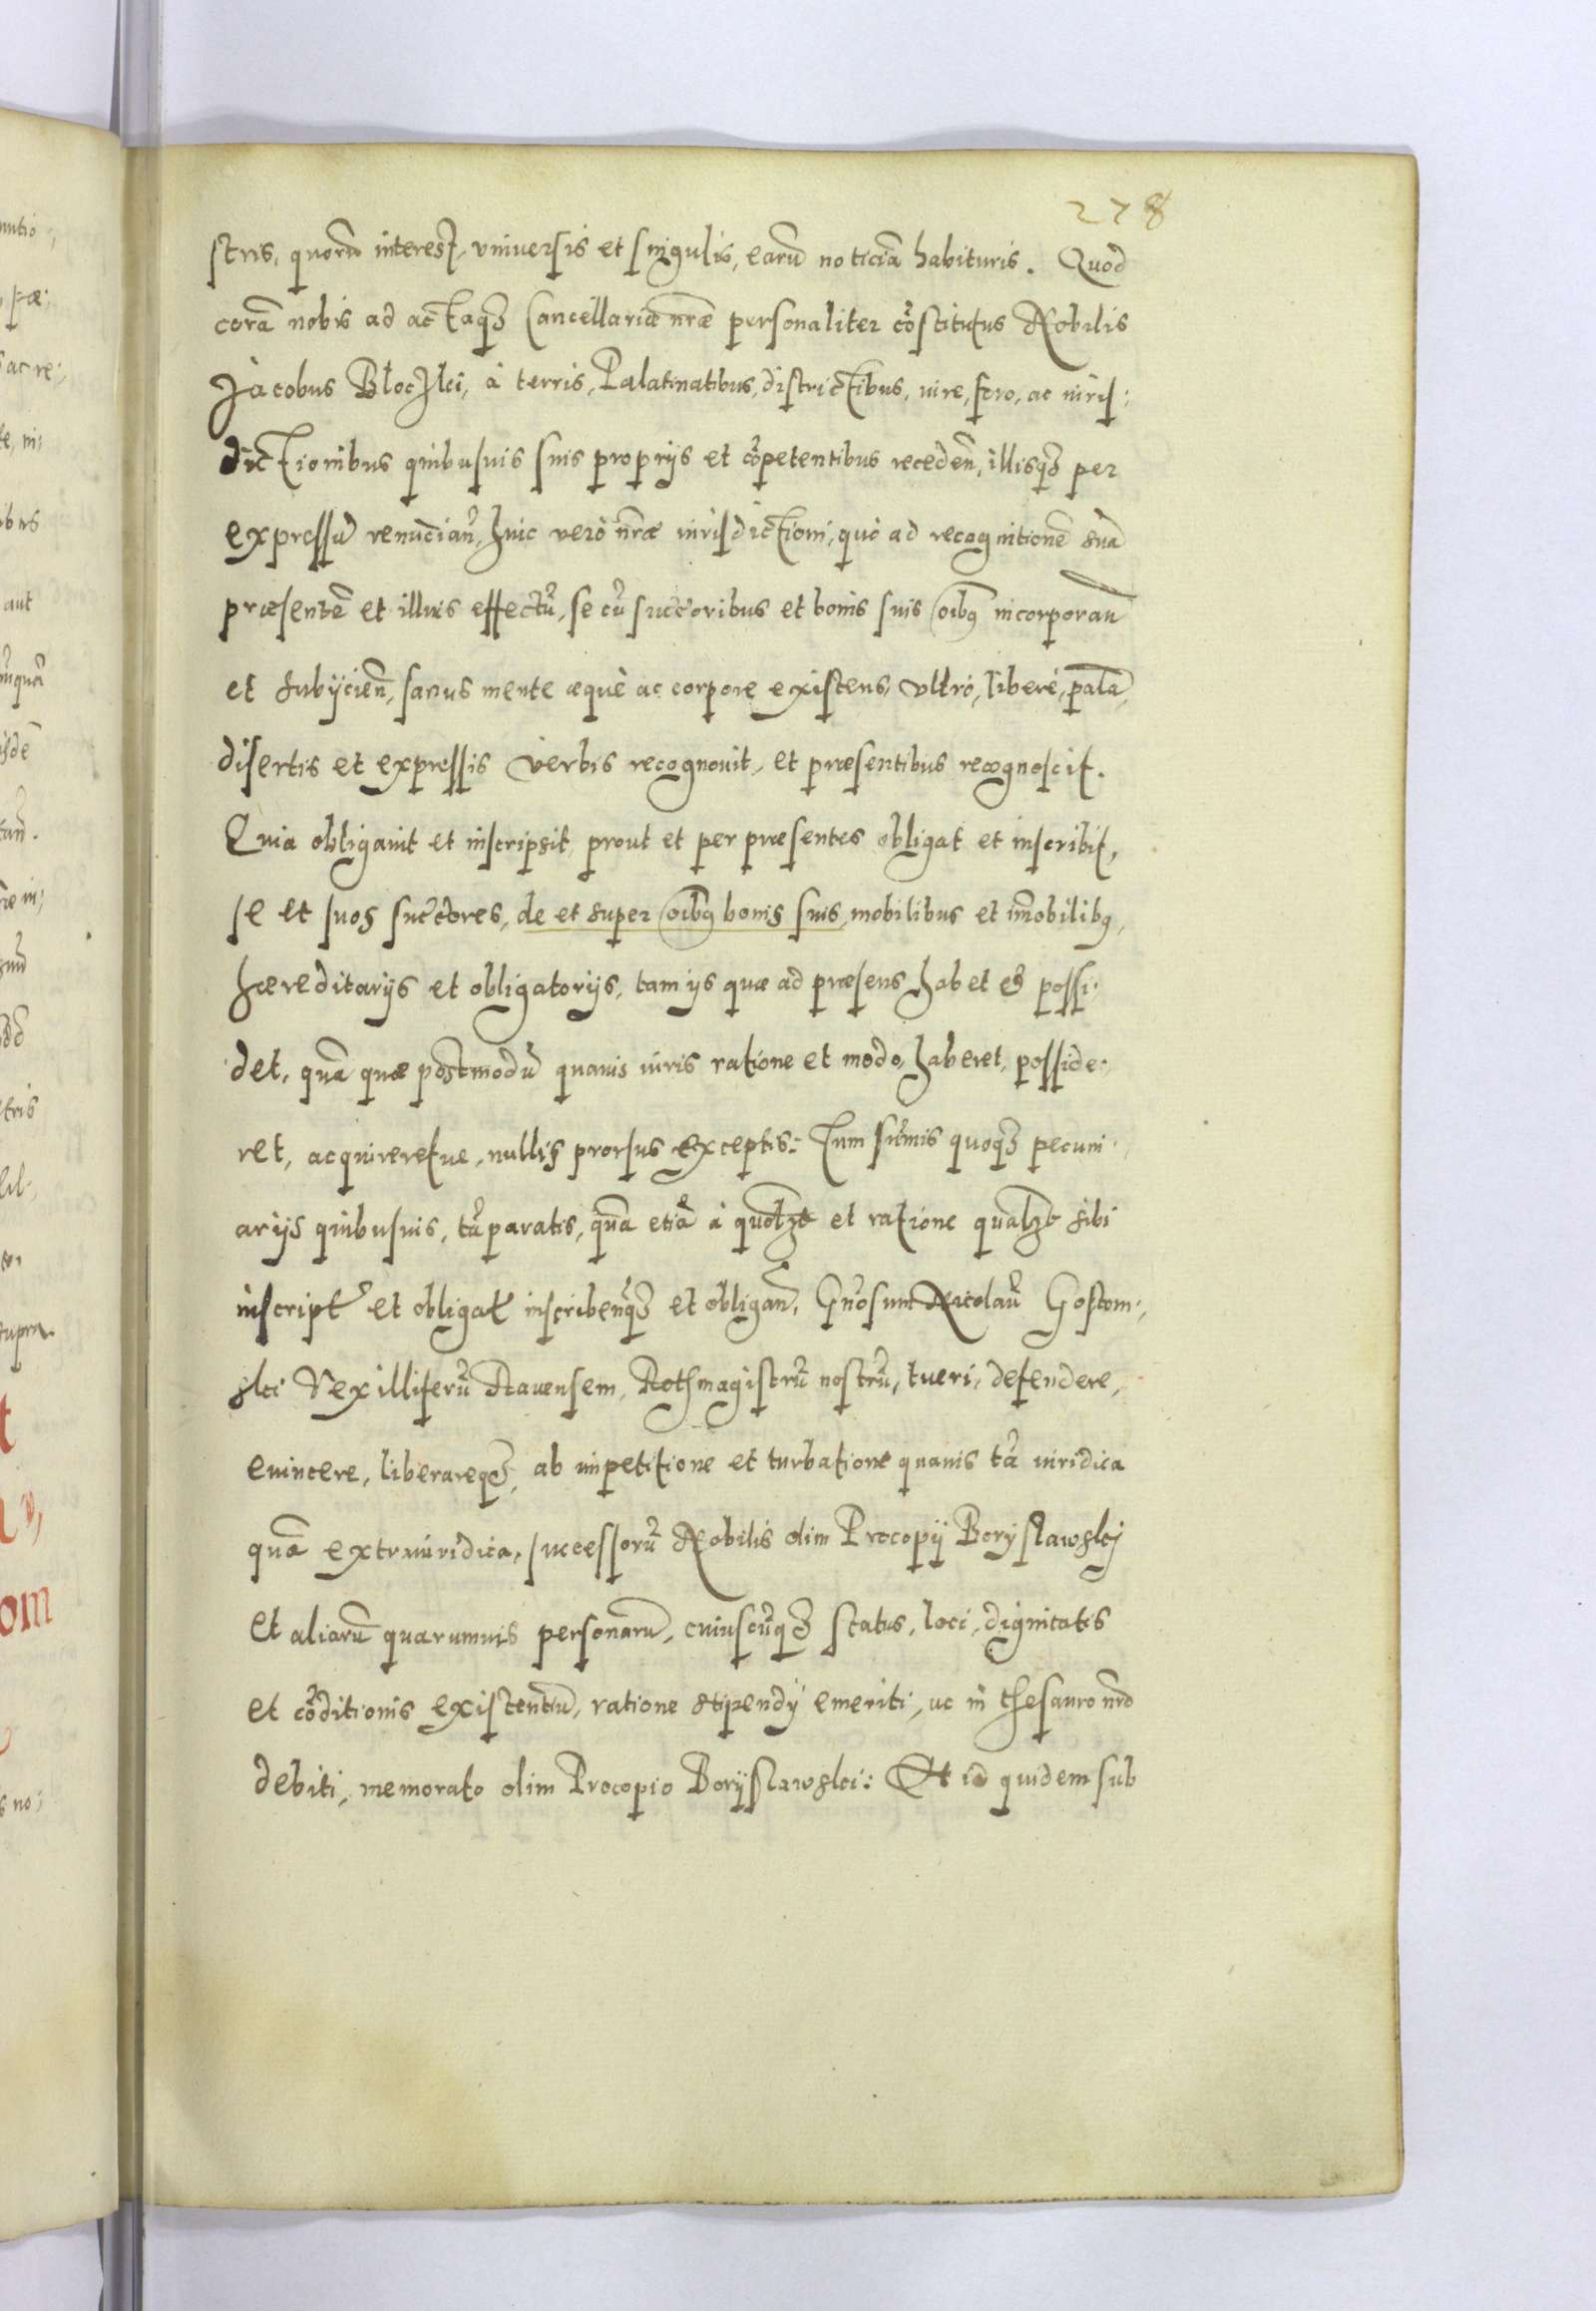 278
stris, quorũ interest, vniuersis et singulis, earũ noticiã habituris. Quod
corã nobis ad actaqꝫ Cancellariæ nr̃æ personaliter cõstitutus Nobilis
Jacobus Błoczki, à terris, Palatinatibus, districtibus, iure, foro, ac iuris:
dictionibus quibusuis suis proprijs et cõpetentibus receden̄, illisqꝫ per
expressũ renũcian̄, huic verò nr̃æ iurisdictioni, quò ad recognitionẽ suã
præsentẽ et illius effectũ, se cũ succ̃oribus et bonis suis oĩbꝰ incorporan̄
et subijcien̄, sanus mente æquè ac corpore existens, vltrò, liberè, palã,
disertis et expressis verbis recognouit, et præsentibus recognoscit.
Quia obligauit et inscripsit, prout et per præsentes obligat et inscribit,
se et suos succ̃tores, de et super oĩbꝰ bonis suis, mobilibus et im̃obilibꝰ,
hæreditarijs et obligatorijs, tam ijs quæ ad præsens habet & possi:
det, quã quæ postmodũ quauis iuris ratione et modo, haberet, posside:
ret, acquireretue, nullis prorsus exceptis: Tum sum̃is quoqꝫ pecuni:
arijs quibusuis, tã paratis, quã etiã à quolꝫt et ratione qualꝫt sibi
inscript̃ et obligat̃ inscriben̄qꝫ et obligan̄, Gñosum Nicolaũ Gostom:
ski Vexilliferũ Rauensem, Rothmagistrũ nostrũ, tueri, defendere,
euincere, liberareqꝫ, ab impetitione et turbatione quauis tã iuridica
quã extraiuridica, successorũ Nobilis olim Procopij Boryslawskj
et aliarũ quarumuis personarũ, cuiuscũqꝫ status, loci, dignitatis
et cõditionis existentiũ, ratione stipendij emeriti, ac in thesauro nr̃o
debiti, memorato olim Procopio Boryslawski: Et id quidem sub